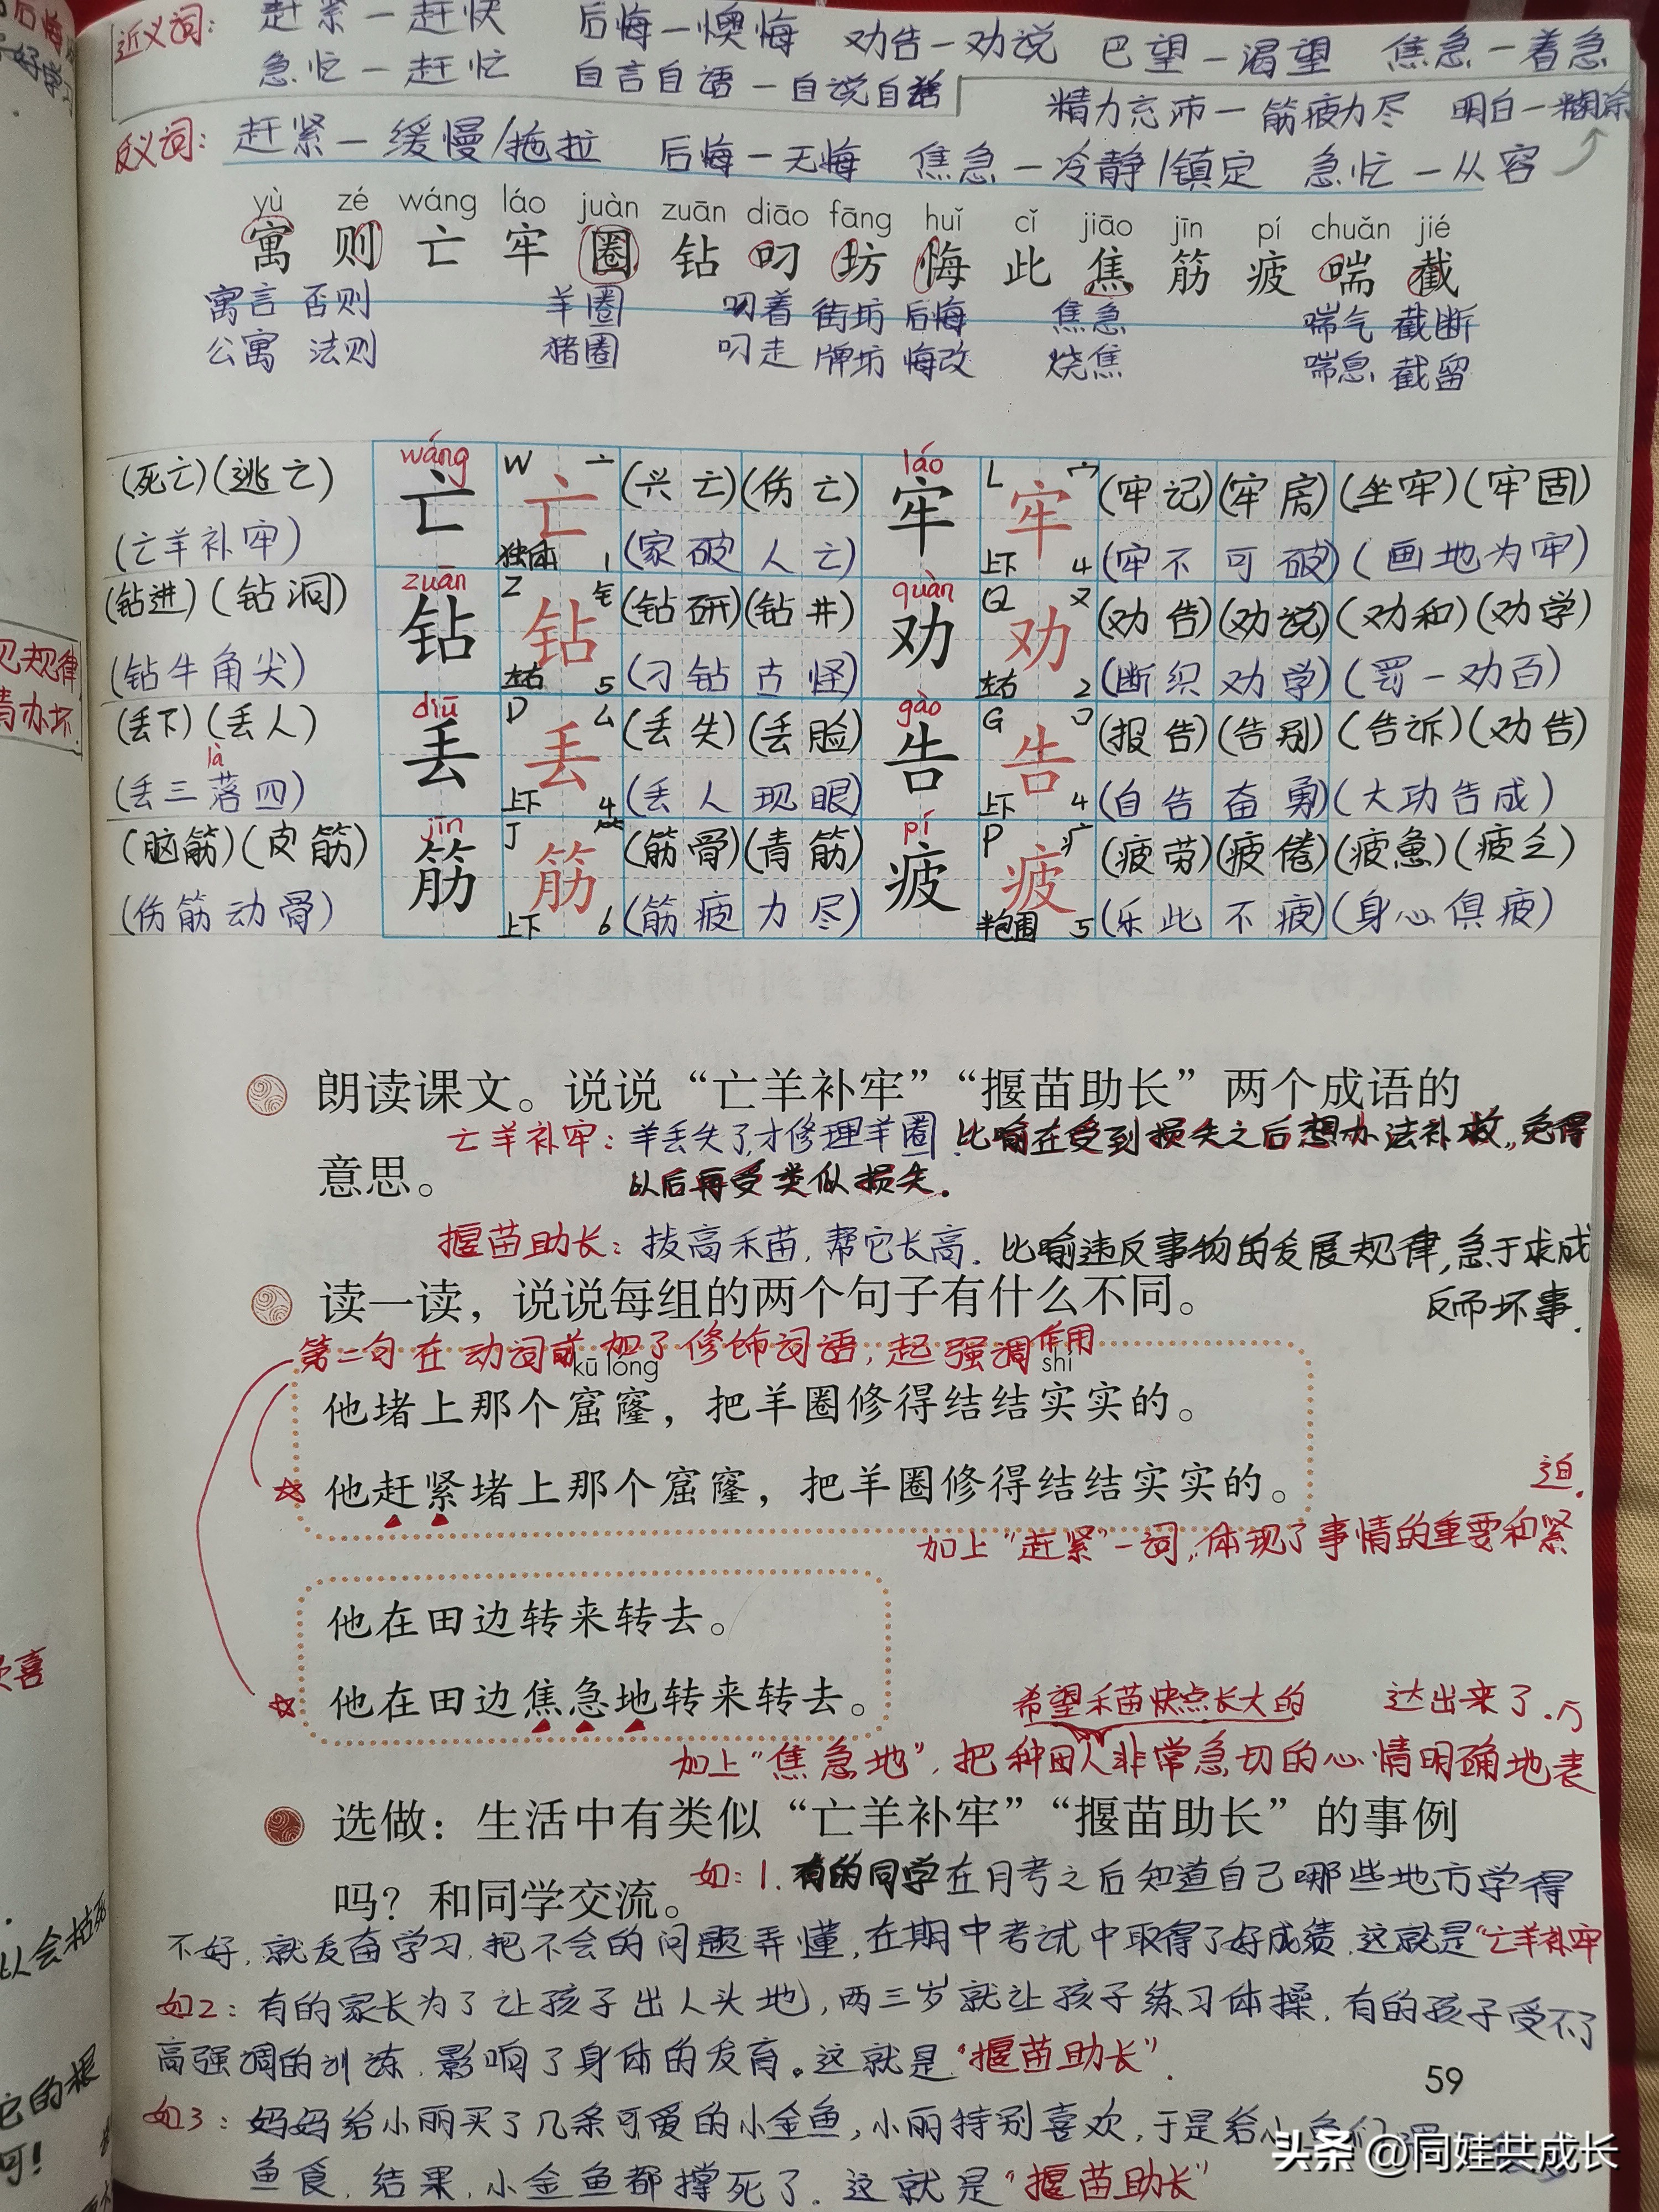 近义词：赶紧—赶快 后悔—懊悔 劝告—劝说 巴望—渴望 焦急—着急
急忙—赶忙 自言自语—自说自话
精力充沛—筋疲力尽 明白—糊涂
反义词：赶紧—缓慢/拖拉 后悔—无悔 焦急—冷静/镇定 急忙—从容
yù zé wáng láo juàn zuān diāo fāng huǐ cǐ jiāo jīn pí chuǎn jié
寓 则 亡 牢 圈 钻 叼 坊 悔 此 焦 筋 疲 喘 截
寓言 否则 羊圈 叼着 街坊 后悔 焦急 喘气 截断
公寓 法则 猪圈 叼走 牌坊 悔改 烧焦 喘息 截留
wáng láo
(死亡)(逃亡) 亡 W 亠 亡 (兴亡)(伤亡) 牢 L 宀 牢 (牢记)(牢房)(坐牢)(牢固)
(亡羊补牢) 独体 1 (家破人亡) 上下 4 (牢不可破)(画地为牢)
zuān quàn
(钻进)(钻洞) 钻 Z 钅 钻 (钻研)(钻井) 劝 Q 又 劝 (劝告)(劝说)(劝和)(劝学)
(钻牛角尖) 左右 5 (刁钻古怪) 左右 2 (断织劝学)(罚一劝百)
diū gào
(丢下)(丢人) 丢 D 厶 丢 (丢失)(丢脸) 告 G 口 告 (报告)(告别)(告诉)(劝告)
là
(丢三落四) 上下 4 (丢人现眼) 上下 4 (自告奋勇)(大功告成)
jīn pí
(脑筋)(皮筋) 筋 J 筋 (筋骨)(青筋) 疲 P 疒 疲 (疲劳)(疲倦)(疲惫)(疲乏)
(伤筋动骨) 上下 6 (筋疲力尽) 半包围 5 (乐此不疲)(身心俱疲)
朗读课文。说说“亡羊补牢”“揠苗助长”两个成语的
亡羊补牢：羊丢失了，才修理羊圈。比喻在受到损失之后想办法补救，免得
意思。
以后再受类似损失。
揠苗助长：拔高禾苗，帮它长高。比喻违反事物的发展规律，急于求成
反而坏事。
读一读，说说每组的两个句子有什么不同。
第二句在动词前加了修饰词语，起强调作用
kū lóng shi
他堵上那个窟窿，把羊圈修得结结实实的。
他赶紧堵上那个窟窿，把羊圈修得结结实实的。
迫。
加上“赶紧”一词，体现了事情的重要和紧
他在田边转来转去。
他在田边焦急地转来转去。
希望禾苗快点长大的 达出来了。
加上“焦急地”，把种田人非常急切的心情明确地表
选做：生活中有类似“亡羊补牢”“揠苗助长”的事例
吗？和同学交流。
如：1.有的同学在月考之后知道自己哪些地方学得
不好，就发奋学习，把不会的问题弄懂，在期中考试中取得了好成绩，这就是“亡羊补牢
如2：有的家长为了让孩子出人头地，两三岁就让孩子练习体操，有的孩子受不了
高强调的训练，影响了身体的发育。这就是“揠苗助长”。
59
如3：妈妈给小丽买了几条可爱的小金鱼，小丽特别喜欢，于是给小鱼
鱼食，结果，小金鱼都撑死了，这就是“揠苗助长”
头条 @同娃共成长